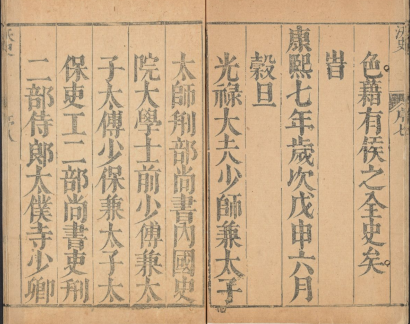 色藉有俟之全史矣
旹
康熙七年歲次戊申六月
穀旦
光祿大夫少師兼太子
太師刑部尚書內國史
院大學士前少傅兼太
子太傅少保兼太子太
保吏工二部尚書吏刑
二部侍郎太僕寺少卿